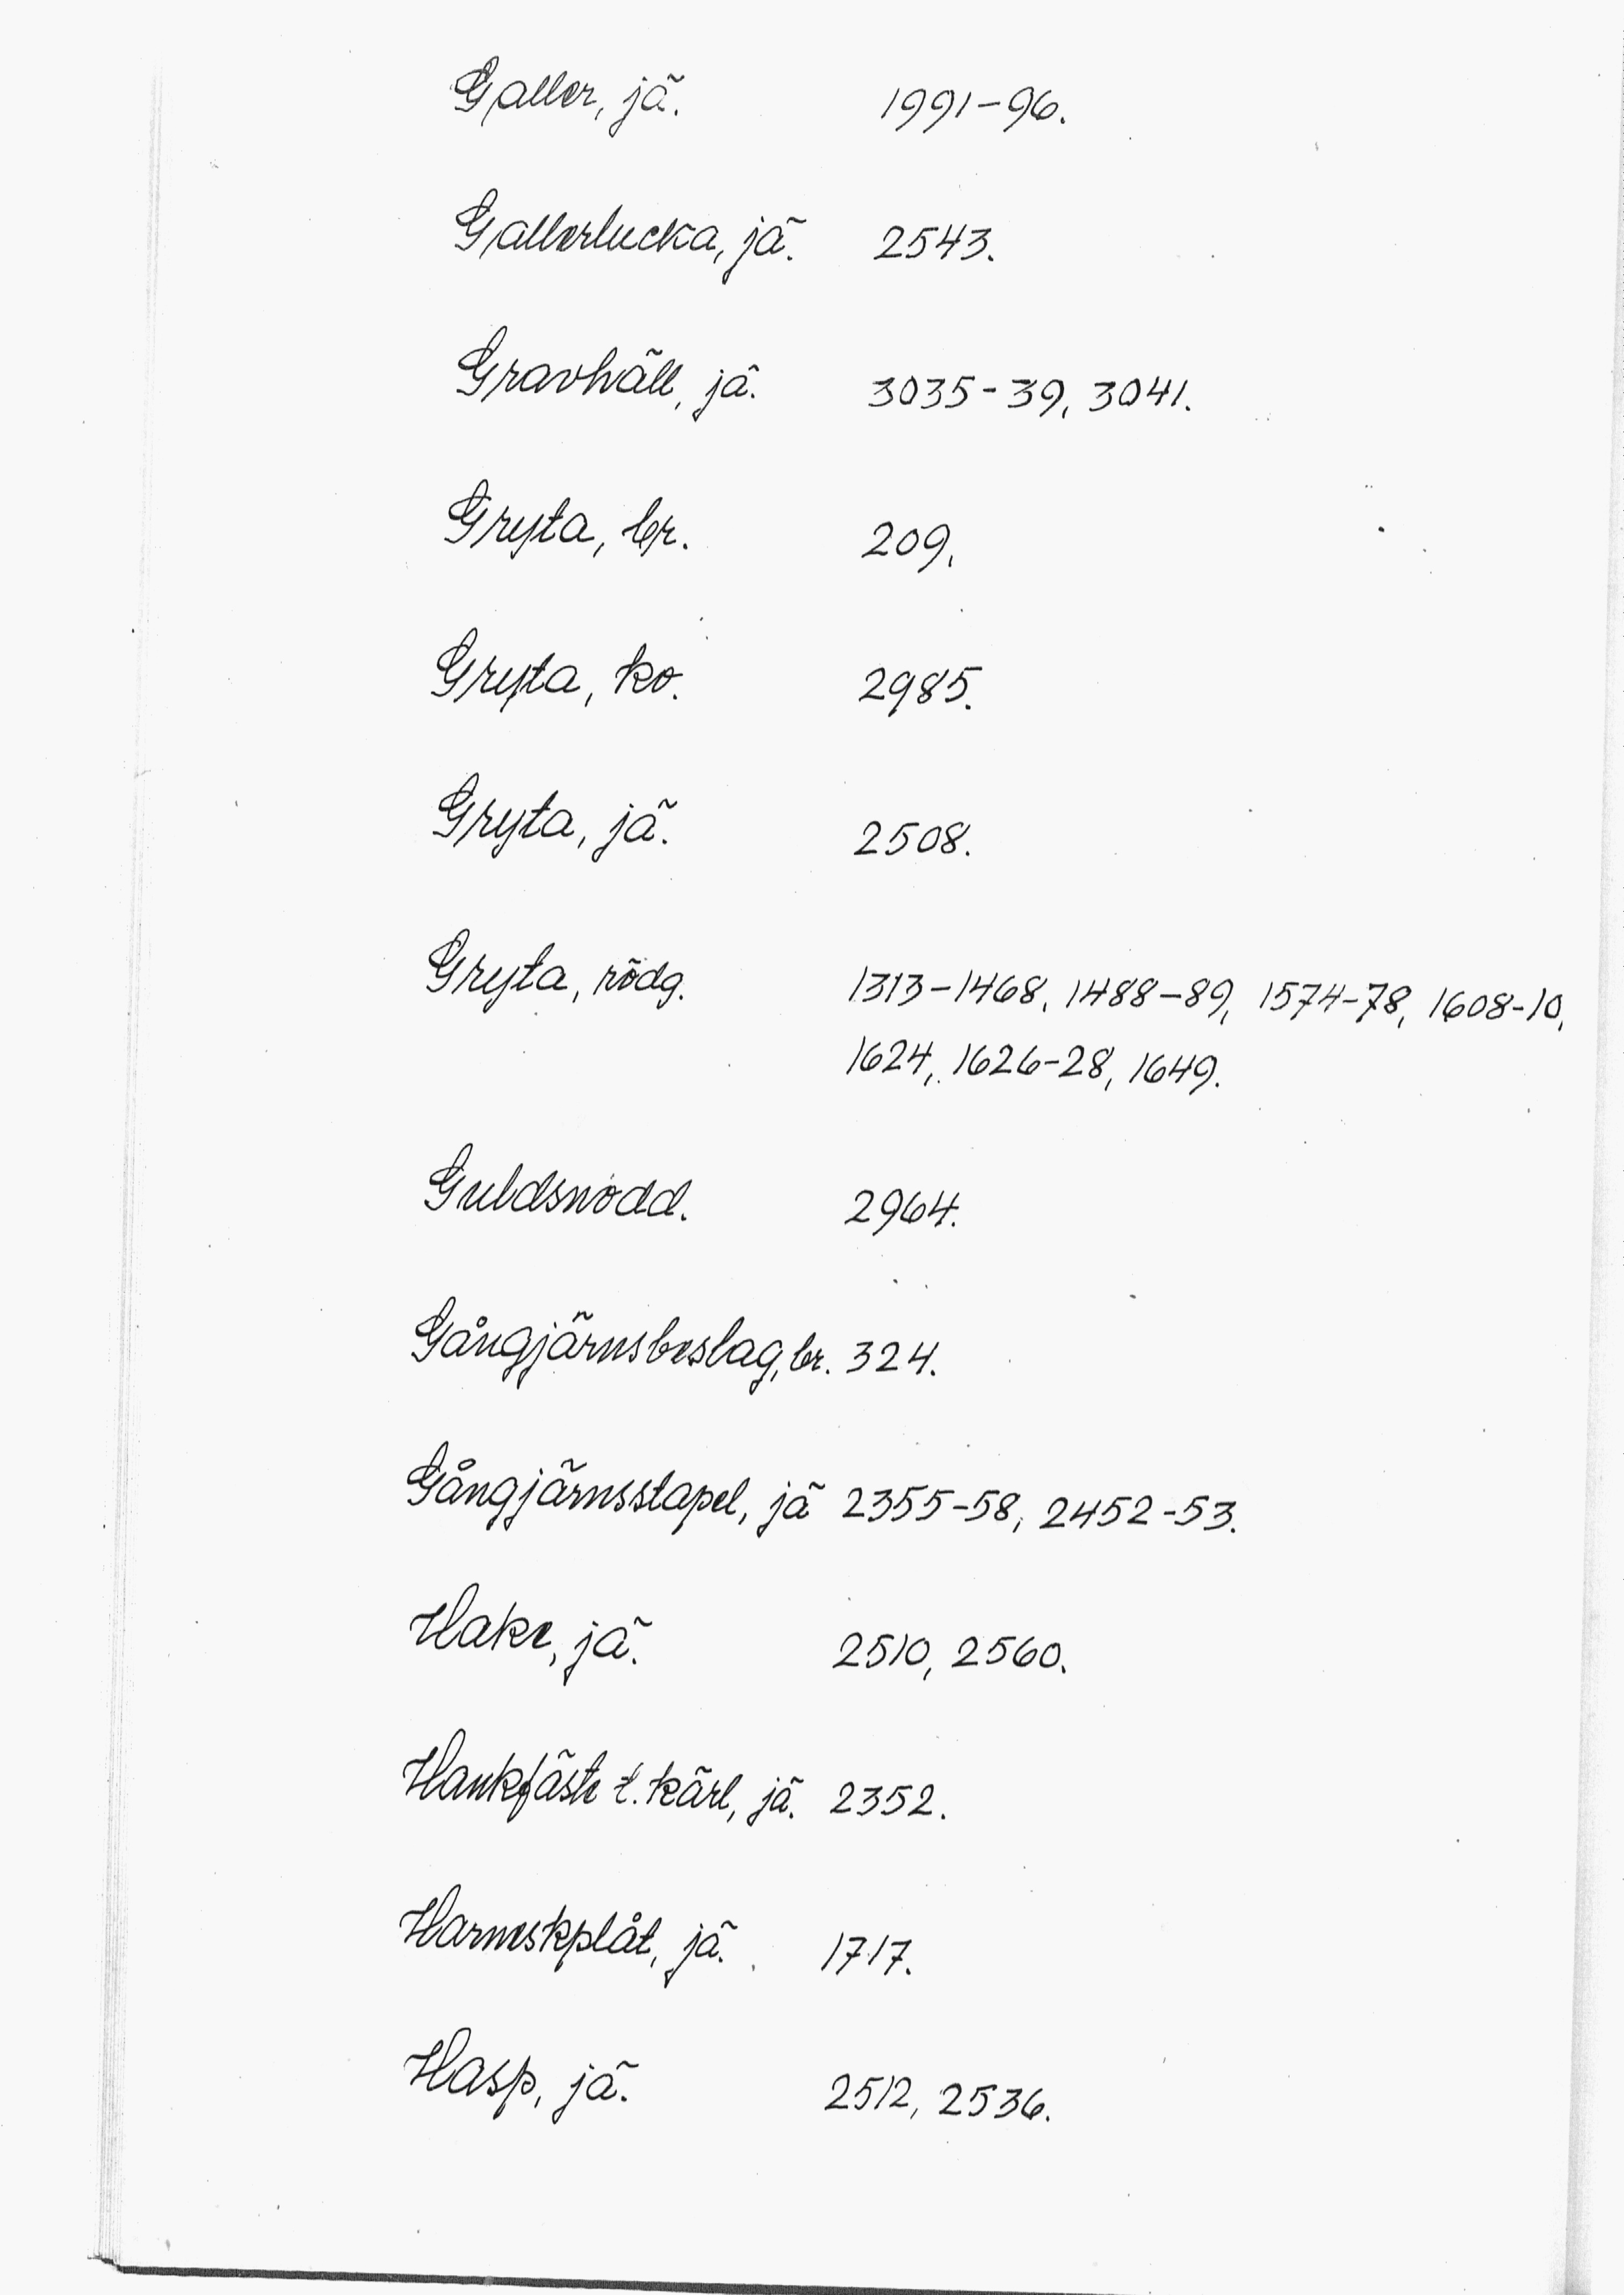 Galler, jä. 1991-96.
Gallerlucka, jä. 2543.
Gravhäll, jä. 3035-39, 3041.
Gryta, br. 209.
Gryta, ko. 2985.
Gryta, jä. 2508.
Gryta, rödg. 1313-1468, 1488-89, 1574-78, 1608-10,
1624, 1626-28, 1649.
Guldsnodd. 2964.
Gångjärnsbeslag, br. 324.
Gångjärnsstapel, jä 2355-58, 2452-53.
Hake, jä. 2510, 2560.
Hankfäste t. kärl, jä. 2352.
Harneskplåt, jä. 1717.
Hasp, jä. 2512, 2536.